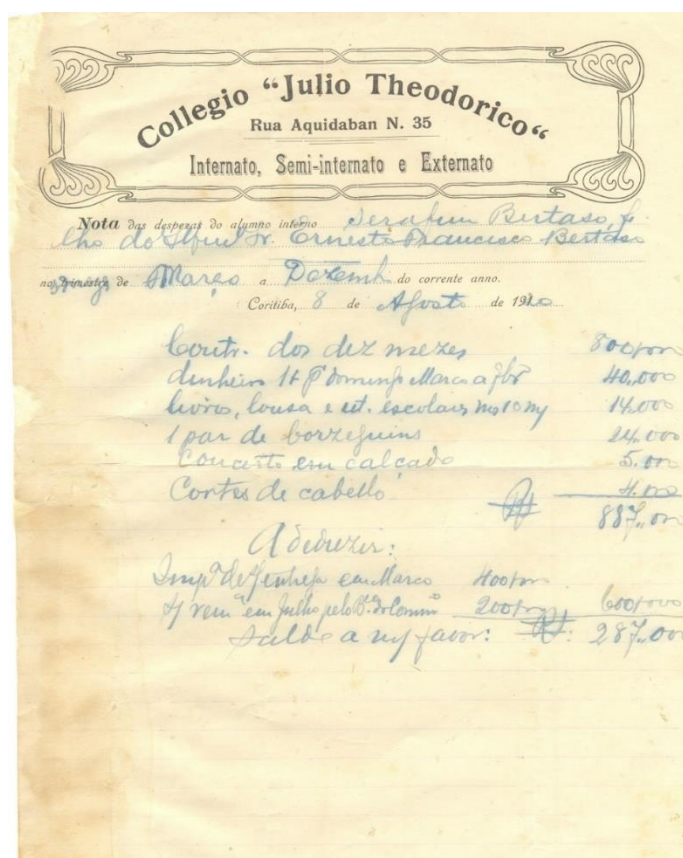 Collegio "Julio Theodorico"
Rua Aquidaban N. 35
Internato, Semi-internato e Externato
Nota das despezas do alumno interno Serafim Bertaso, fi-
lho do Ilmo Sr. Ernesto Francisco Bertaso
no trimestre de Março a Dezemb. do corrente anno.
Coritiba, 8 de Agosto de 1920
Contr. dos dez mezes 800$000
dinheiro domingo Março a 40,000
livros, lousa e ut. escolares 14.000
1 par de borzeguins 24.000
Concerto em calçado 5.000
Cortes de cabello 4.000
Rs 887,000
A deduzir:
em Março 400$000
em Julho pelo 200$000 600$000
Saldo a m/ favor: Rs: 287,000